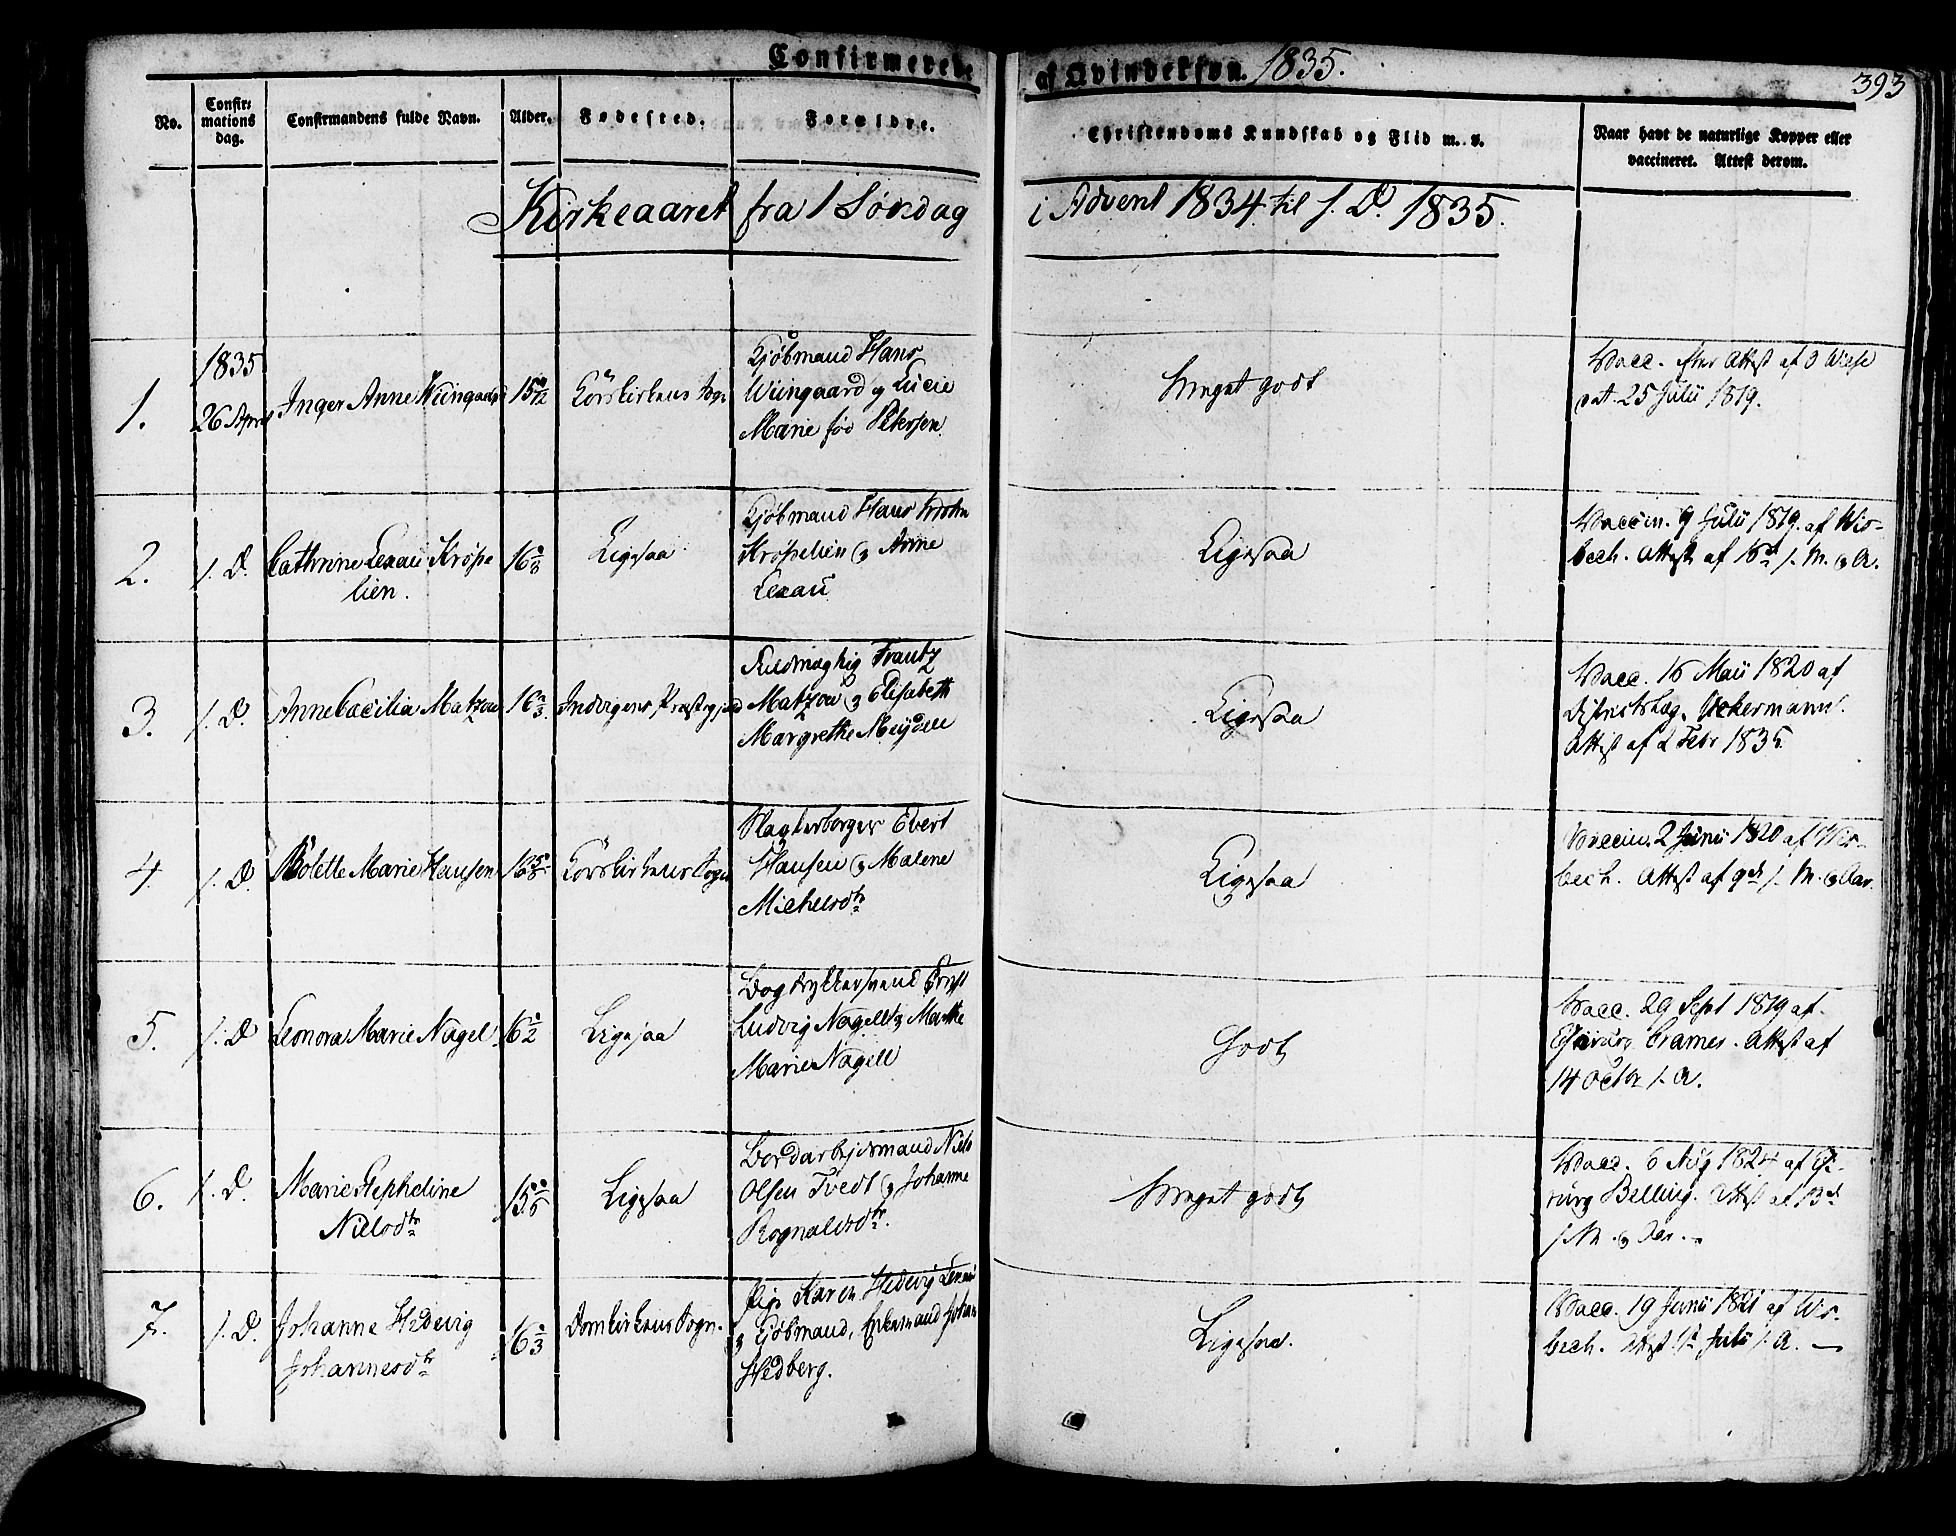 Confirmerede af Qvindekjøn. 1835.
393
No.
Confir-
mations
dag.
Confirmandens fulde Navn.
Alder.
Fødested.
Forældre.
Christendoms Kundskab og Flid m. v.
Naar havt de naturlige Kopper eller
vaccineret. Attest derom.
Kirkeaaret fra 1 Søndag i Advent 1834 til s. D. 1835.
1.
1835
26 April
Inger Anne Wiingaard
15
Korskirkens Sogn
Kjøbmand Hans
Wiingaard og Lucie
Marie fød Petersen
Meget godt
Vacc. efter Attest af
dat. 25 Julii 1819.
2.
s. D.
Cathrine Lexau Krøpe
lien.
16
Ligesaa
Kjøbmand Hans Krohn
Krøpelien og Anne
Lexau
Ligesaa
Vaccin. 9 Julii 1819. af Wis-
bech. Attest af 16 s. M. og A.
3.
s. D.
Anne Cæcilia Matzou
16
Indvigens Præstegjeld
Fuldmægtig Frantz
Matzou og Elisabeth
Margrethe Meydell
Ligesaa
Vacc. 16 Maii 1820 af
Districtslæg. Uckermann.
Attest af 2 Febr 1835
4.
s. D.
Bolette Marie Hansen
16
Korskirkens Sogn
Slagterborger Evert
Hansen og Malene
Michelsdtr
Ligesaa
Vaccin. 2 Junii 1820 af Wis-
bech. Attest af 9de s. M. og Aar.
5.
s. D
Leonora Marie Nagel
16
Ligesaa
Bogtrykkersvend
Ludvig Nagell og Marthe
Marie Nagell
Godt
Vacc. 29 Sept 1819 af
Chirurg Cramer. Attest af
14 Octbr s. A.
6.
s. D.
Marie Stepheline
Nielsdtr
15
Ligesaa
Bordarbejdsmand Niels
Olsen Tvedt og Johanne
Rognaldsdtr.
Meget godt
Vacc. 6 Aug 1824 af Chi-
rurg Belling. Attest af 13de
s. M. og Aar.
7.
s. D.
Johanne Hedevig
Johannesdtr
16
Domkirkens Sogn.
Pige Karen Hedevig
og Kjøbmand, Enkemand Johan
Hedberg.
Ligesaa.
Vacc. 19 Junii 1821 af Wis-
bech. Attest 1st Julii s. A.